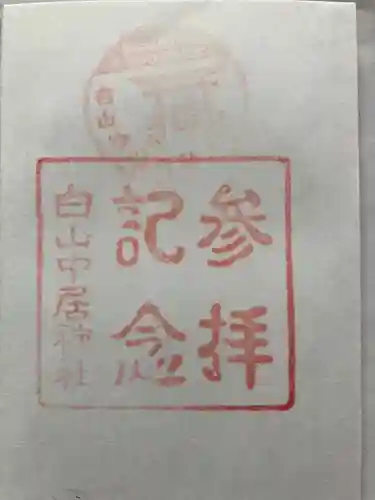 白山中
参拝
記念
白山中居神社